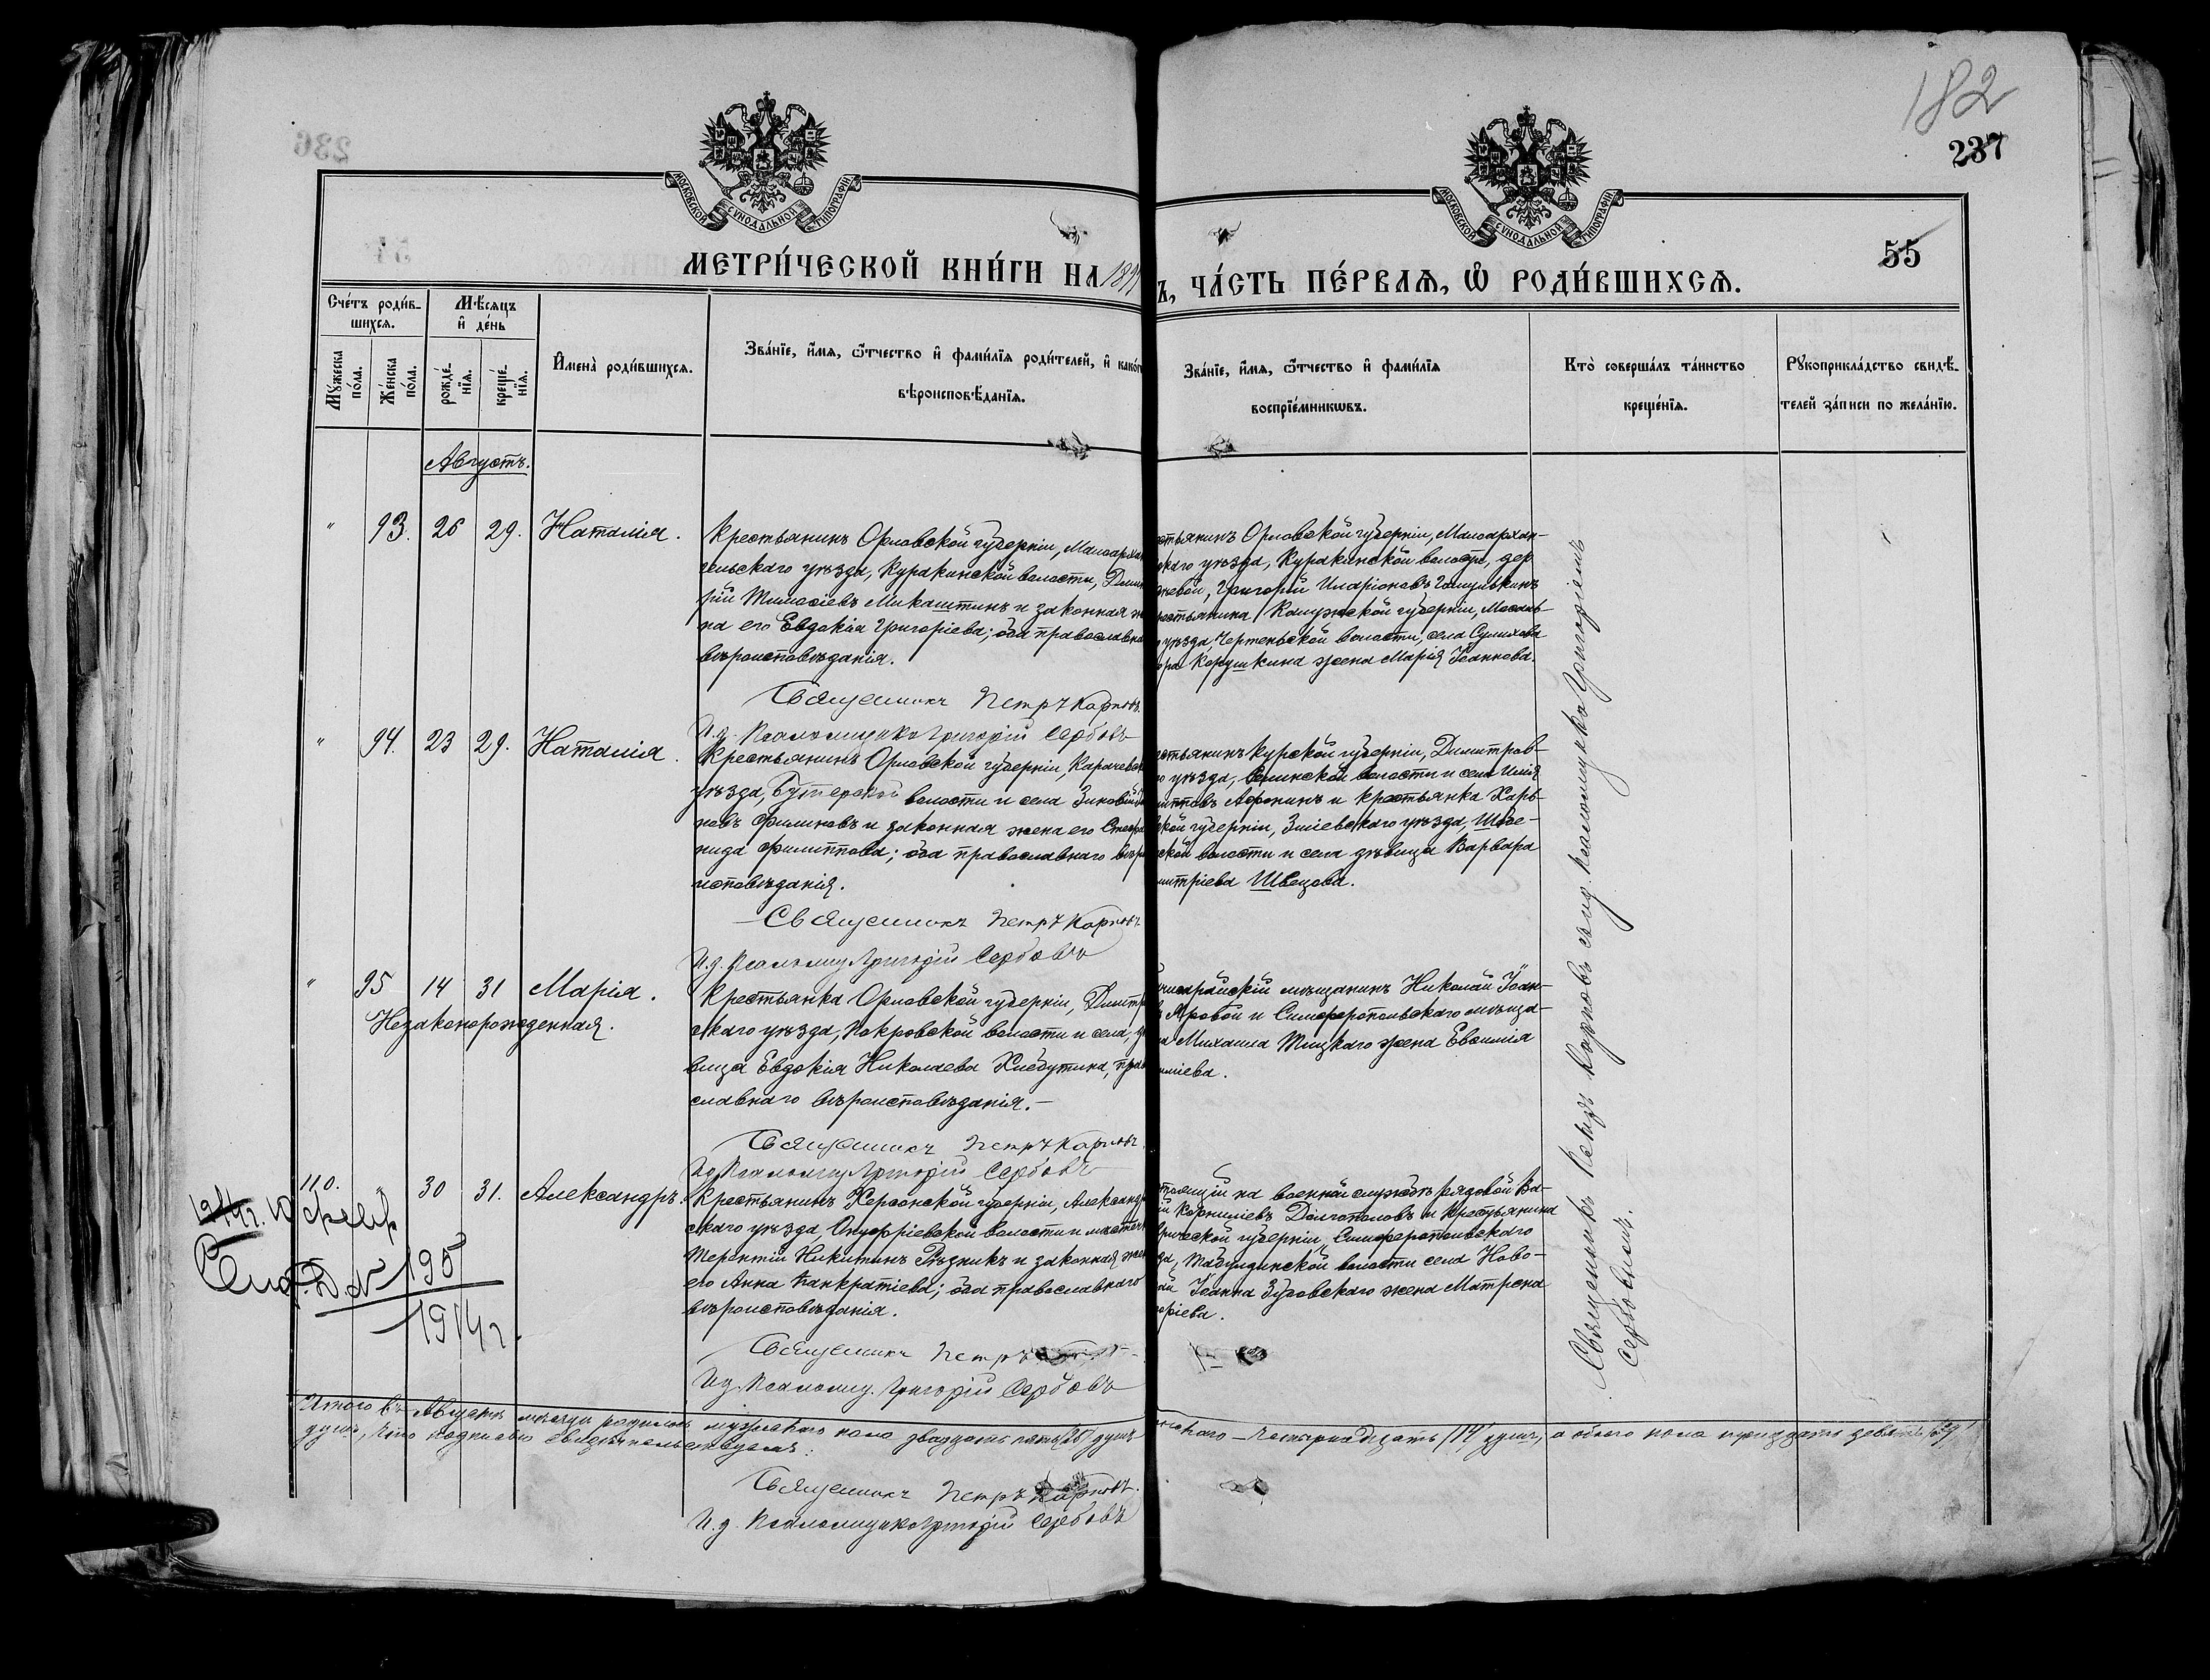 182
237
236
МОСКОВСКОЙ СУНОДАЛЬНОЙ ТИПОГРАФІИ
МОСКОВСКОЙ СУНОДАЛЬНОЙ ТИПОГРАФІИ
55
МЕТРИ́ЧЕСКОЙ КНИ́ГИ НА 189
Ъ, ЧА́СТЬ ПЕ́РВАЯ, Ѽ РОДИ́ВШИХСЯ.
Сче́тъ роди́в-
шихся.
Мѣ́сяцъ
и҆ де́нь
Мꙋ́жеска
по́ла.
Же́нска
по́ла.
рожде́-
нїя.
креще́-
нїя.
И҆мена̀ роди́вшихся.
Зва́нїе, и҆́мя, ѻ҆́тчество и҆ фами́лїя роди́телей, и҆ како́г
вѣроисповѣ́данїя.
Зва́нїе, и҆́мя, ѻ҆́тчество и҆ фами́лїя
воспрїе́мникѡвъ.
Кто̀ соверша́лъ та́инство
креще́нїя.
Рꙋкоприкла́дство свидѣ́-
телей за́писи по жела́нїю.
Августъ.
" 93. 26 29. Наталія.
Крестьянинъ Орловской губерніи, Малоархан
гельскаго уѣзда, Куракинской волости, Дими
рій Тимофіевъ Микаштинъ и законная же
на его Евдокія Григоріева; оба православна
вѣроисповѣданія.
Священникъ Петръ Карповъ.
И.д. Псаломщика Григорій Сербовъ
стьянинъ Орловской губерніи, Малоархан-
скаго уѣзда, Куракинской волости, дер
невой, Григорій Иларіоновъ Гашулькинъ
рестьянина Калужской губерніи, Мосаль-
уѣзда, Чертеньской волости, села Сулихова
ора Корушкина жена Марія Іоаннова.
" 94. 23 29. Наталія.
Крестьянинъ Орловской губерніи, Карачевск
уѣзда, волости и села Зиновій
новъ Филиновъ и законная жена его Степа
нида Филиппова; оба православнаго вѣро
исповѣданія.
Священникъ Петръ Карповъ
И.д. Псаломщ. Григорій Сербовъ
стьянинъ Курской губерніи, Димитров-
о уѣзда, волости и села Илія
липповъ Афонинъ и крестьянка Харь-
ской губерніи, Зміевскаго уѣзда, Шебе-
ской волости и села дѣвица Варвара
митріева Швецова.
" 95 14 31 Марія.
Незаконорожденная.
Крестьянка Орловской губерніи, Димтр
скаго уѣзда, Покровской волости и села, дѣ
вица Евдокія Николаева Хлебутина, право
славнаго вѣроисповѣданія.-
Священникъ Петръ Карповъ
И.д. Псаломщ. Григорій Сербовъ
мѣщанинъ Николай Іоан-
Яровой и Симферопольскаго мѣща-
на Михаила Тицкаго жена Евфимія
иліева.
110. " 30 31. Александръ.
Крестьянинъ Херсонской губерніи, Александр
скаго уѣзда, Онуфріевской волости и мѣстеч
Терентій Никитинъ Рѣзникъ и законная жен
его Анна Панкратіева; оба православнаго
вѣроисповѣданія.
Священникъ Петръ
И.д. Псаломщ. Григорій Сербовъ
стоящій на военной службѣ рядовой Ва-
ій Корниліевъ Долгополовъ и крестьянина
врической губерніи, Симферопольскаго
да, Табулдинской волости села Ново-
Іоанна Зуровскаго жена Матрона
оріева.
1914г. 10 февр
№ 195
1914г.
Священникъ Петръ Карповъ съ и.д. псаломщика Григоріемъ
Сербовымъ.
Итого въ Августѣ мѣсяцѣ родилось мужескаго пола двадцать пять /25/ душъ
женскаго – четырнадцать /14/ душъ, а обоего пола тридцать девять /39/
душъ, что подписью свидѣтельствуемъ:
Священникъ Петръ Карповъ.
И.д. Псаломщика Григорій Сербовъ